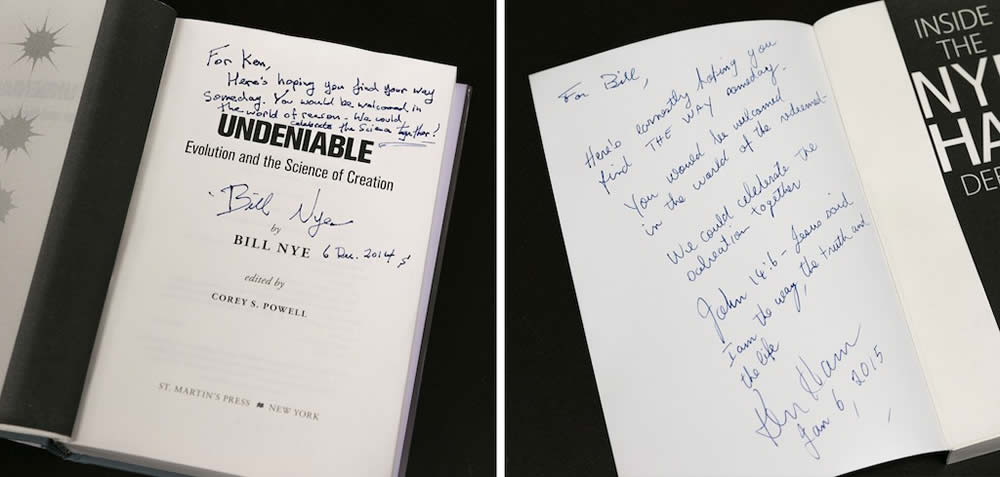 For Ken,
Here's hoping you find your way
someday. You would be welcomed in
the world of reason. We could
celebrate the science together!
UNDENIABLE
Evolution and the Science of Creation
Bill Nye
by
BILL NYE 6 Dec. 2014
edited by
COREY S. POWELL
ST. MARTIN'S PRESS NEW YORK
For Bill,
Here's earnestly hoping you
find THE WAY someday.
You would be welcomed
in the world of the redeemed-
We could celebrate the
creation together
John 14:6 - Jesus said
I am the way, the truth and
the life
Ken Ham
Jan 6, 2015
INSIDE
THE
NYE
HA
DEB